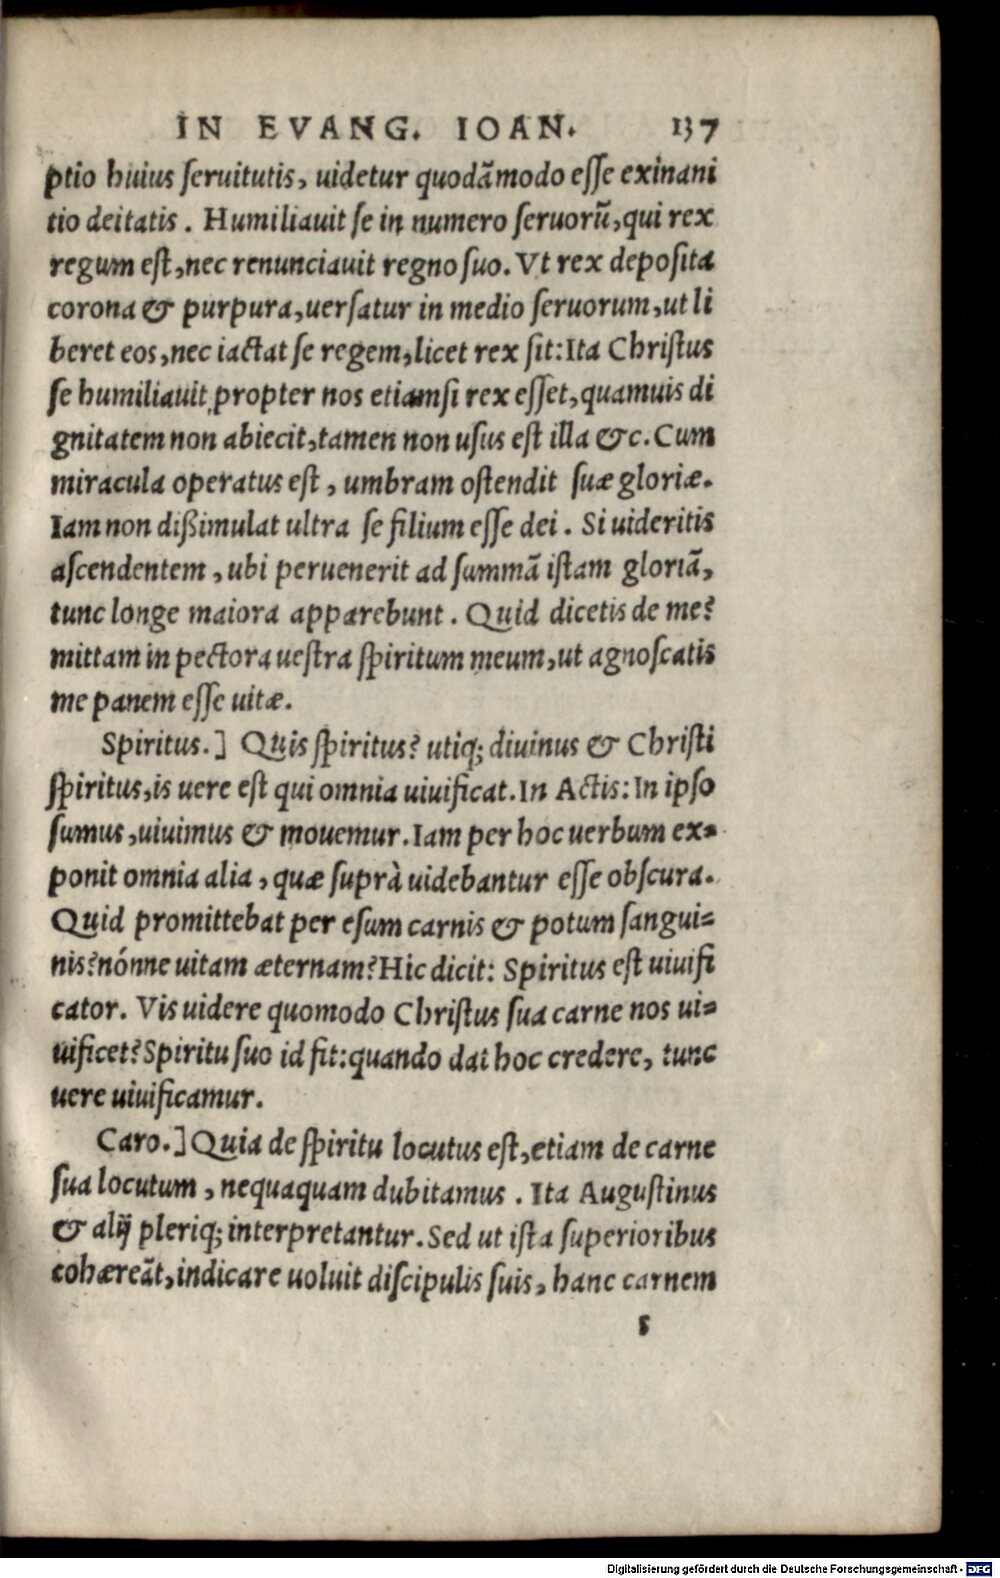 IN EVANG. IOAN. 137
ptio huius ſeruitutis, uidetur quodãmodo eſſe exinani
tio deitatis. Humiliauit ſe in numero ſeruorũ, qui rex
regum eſt, nec renunciauit regno ſuo. Vt rex depoſita
corona & purpura, uerſatur in medio ſeruorum, ut li
beret eos, nec iactat ſe regem, licet rex ſit: Ita Chriſtus
ſe humiliauit propter nos etiamſi rex eſſet, quamuis di
gnitatem non abiecit, tamen non uſus eſt illa &c. Cum
miracula operatus eſt, umbram oſtendit ſuæ gloriæ.
Iam non dißimulat ultra ſe filium eſſe dei. Si uideritis
aſcendentem, ubi peruenerit ad ſummã iſtam gloriã,
tunc longe maiora apparebunt. Quid dicetis de me?
mittam in pectora ueſtra ſpiritum meum, ut agnoſcatis
me panem eſſe uitæ.
Spiritus.] Quis ſpiritus? utiq; diuinus & Chriſti
ſpiritus, is uere eſt qui omnia uiuificat. In Actis: In ipſo
ſumus, uiuimus & mouemur. Iam per hoc uerbum ex-
ponit omnia alia, quæ ſuprà uidebantur eſſe obſcura.
Quid promittebat per eſum carnis & potum ſangui-
nis? nónne uitam æternam? Hic dicit: Spiritus eſt uiuifi
cator. Vis uidere quomodo Chriſtus ſua carne nos ui-
uificet? Spiritu ſuo id fit: quando dat hoc credere, tunc
uere uiuificamur.
Caro.] Quia de ſpiritu locutus eſt, etiam de carne
ſua locutum, nequaquam dubitamus. Ita Auguſtinus
& alij pleriq; interpretantur. Sed ut iſta ſuperioribus
cohæreãt, indicare uoluit diſcipulis ſuis, hanc carnem
s
Digitalisierung gefördert durch die Deutsche Forschungsgemeinschaft - DFG